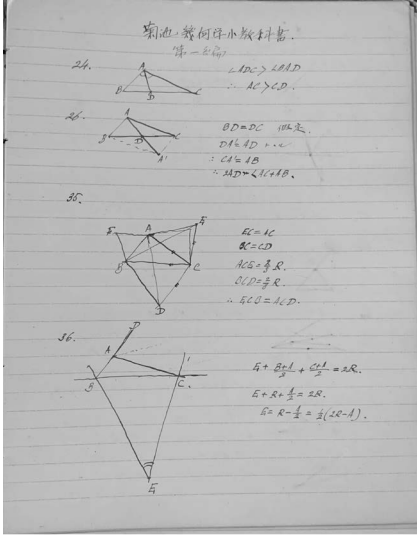 菊池・幾何学小教科書.
第一編
24.
A
B
D
C
∠ADC > ∠BAD
∴ AC > CD.
26.
A
B
D
C
A'
BD = DC
DA' = AD
∴ CA' = AB
∴ 2AD < AC + AB.
35.
A
E
B
C
D
EC = AC
BC = CD
ACE = ⅔ R.
BCD = ⅔ R.
∴ ECB = ACD.
36.
D
A
B
C
E
E + (B+A)/2 + (C+A)/2 = 2R.
E + R + A/2 = 2R.
E = R − A/2 = ½(2R − A).